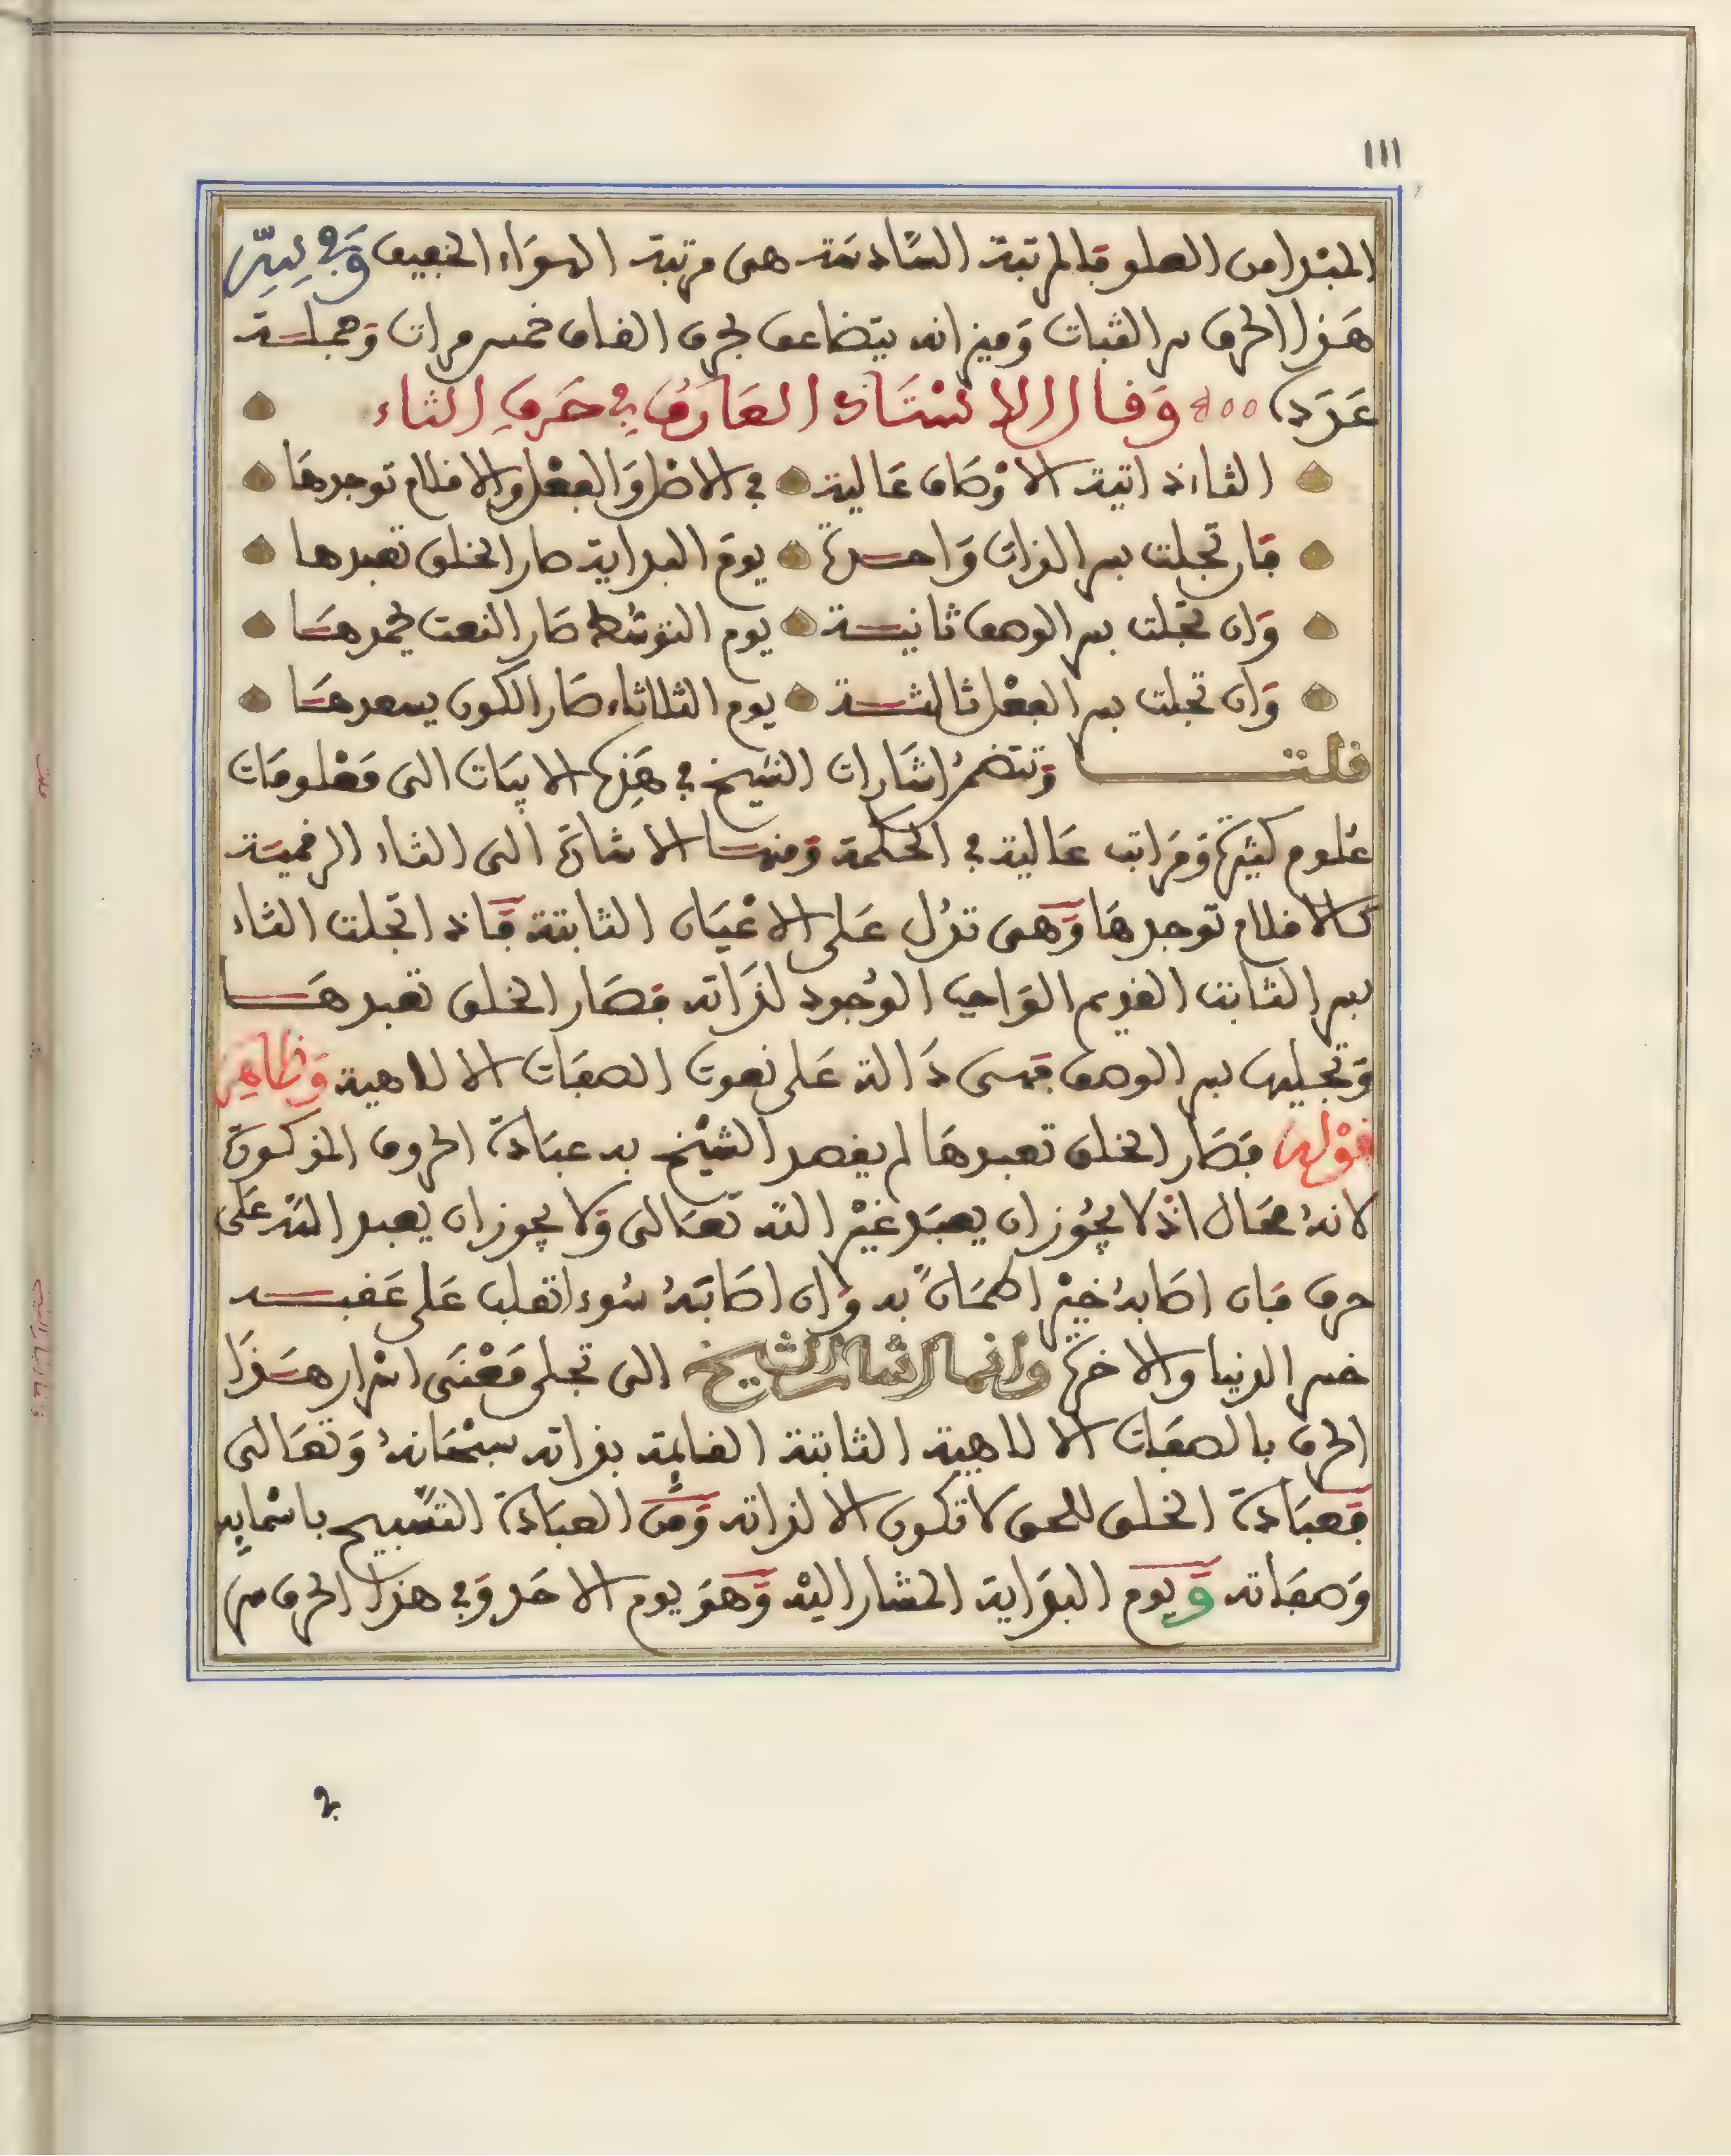 111
المبدا من العلو فالمرتبة السادسة هى مرتبة الهواء الخفيف وفي سر
هذا الحرف سر الثبات وميزانه يتضاعف لحرف القاف خمس مرات وجملة
عدده ٥٠٠ وقال الاستاذ العارف في حرف الثاء
الثاء ذاتية الاوصاف عالية في الاصل والفعل والاقلام توجدها
فان تجلت بسر الذات واحدة يوم البداية صار الخلق تعبدها
وان تجلت بسر الوصف ثانية يوم التوسط صار النعت يحمدها
وان تجلت بسر الفعل ثالثة يوم الثلاثاء صار الكون يسعدها
قلت وتتضمن اشارات الشيخ في هذه الابيات الى معلومات
علوم كثيرة ومراتب عالية في الحكمة ومنها الاشارة الى الثاء الرقمية
كالاقلام توجدها وهى تدل على الاعيان الثابتة فاذا تجلت الثاء
بسر الثابت القديم الواجب الوجود لذاته فصار الخلق تعبدها
وتجليها بسر الوصف فهى دالة على نعوت الصفات الالاهية وظاهر
قوله فصار الخلق تعبدها لم يقصد الشيخ به عبادة الحروف المذكورة
لانه محال اذ لا يجوز ان يعبد غير الله تعالى ولا يجوز ان يعبد الله على
حرف فان اصابه خير اطمان به وان اصابته سوء انقلب على عقبه
خسر الدنيا والاخرة وانما اشار الشيخ الى تجلى معنى اسرار هذا
الحرف بالصفات الالاهية الثابتة القائمة بذاته سبحانه وتعالى
فعبادة الخلق للحق لا تكون الا لذاته ومن العبادة التسبيح باسمايه
وصفاته ويوم البداية المشار اليه وهو يوم الاحد وفي هذا الحرف سر